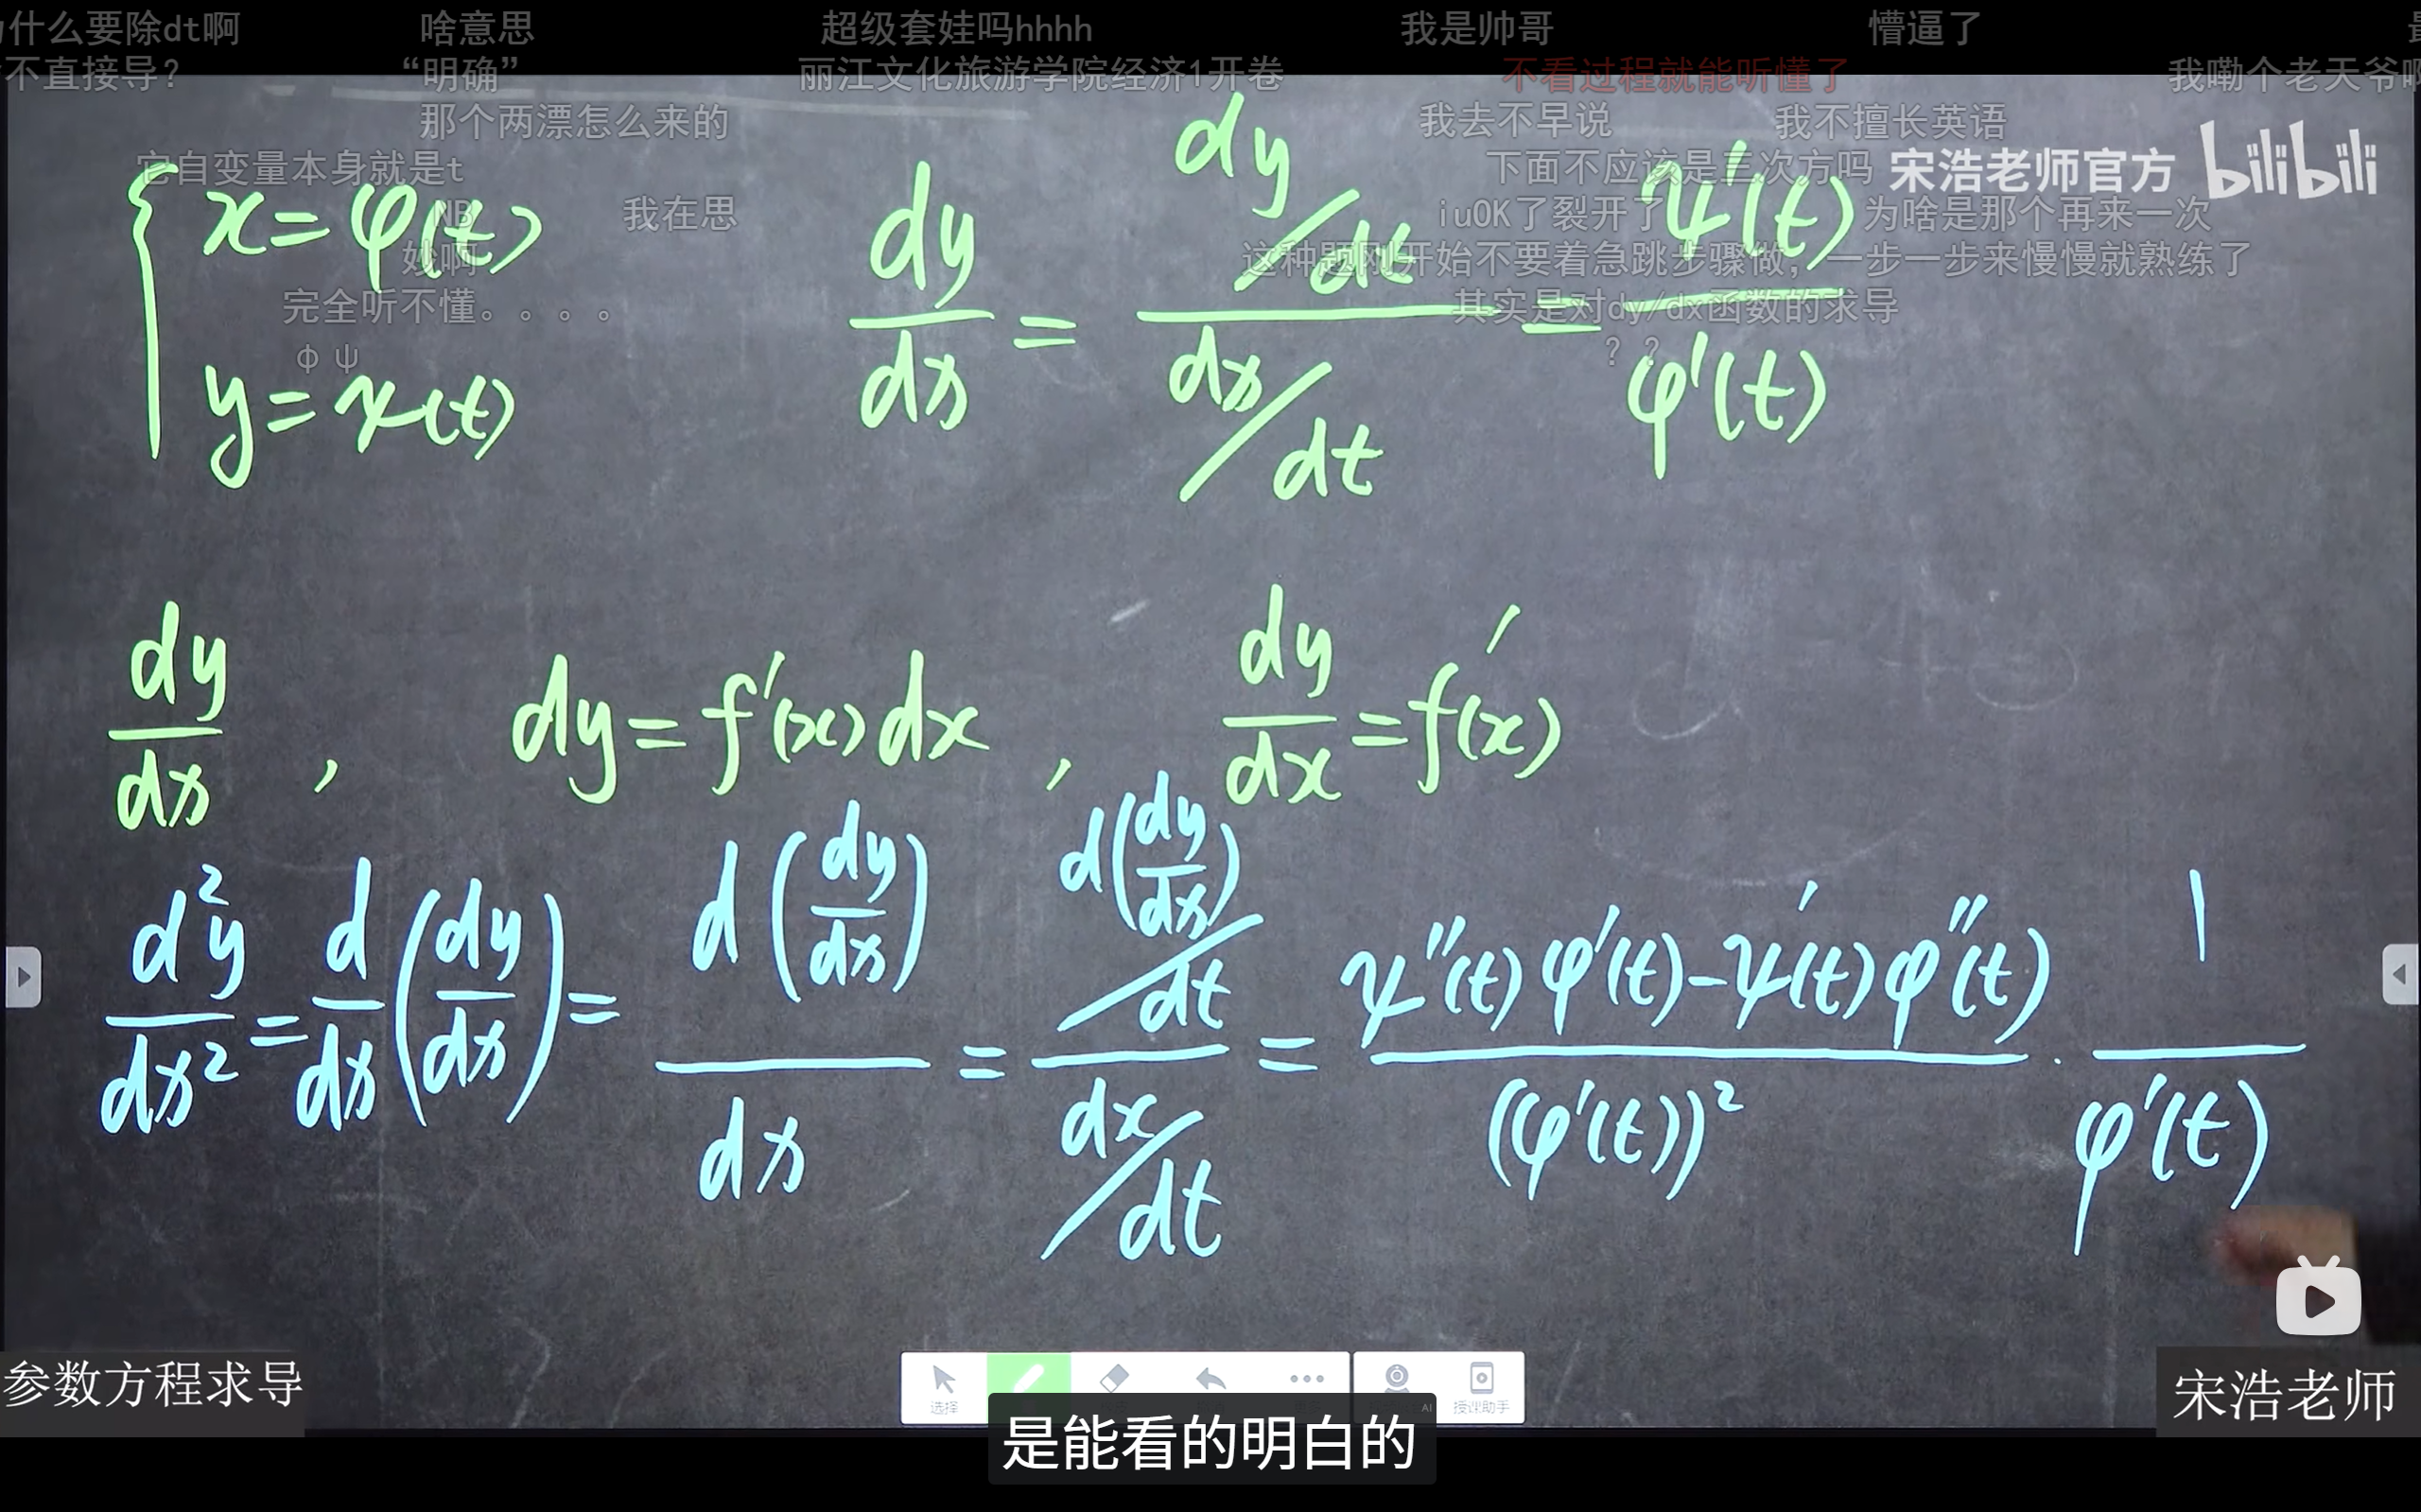 什么要除dt啊 啥意思 超级套娃吗hhhh 我是帅哥 懵逼了
不直接导？ “明确” 丽江文化旅游学院经济1开卷 不看过程就能听懂了 我嘞个老天爷
那个两漂怎么来的 我去不早说 我不擅长英语
它自变量本身就是t 下面不应该是三次方吗 宋浩老师官方 bilibili
NB 我在思 iuOK了裂开了 为啥是那个再来一次
妙啊 这种题刚开始不要着急跳步骤做，一步一步来慢慢就熟练了
完全听不懂。。。。 其实是对dy/dx函数的求导
Φ ψ ？？
{ x=φ(t)
y=ψ(t)
dy/dx = (dy/dt)/(dx/dt) = ψ'(t)/φ'(t)
dy/dx , dy=f'(x)dx , dy/dx=f'(x)
d²y/dx² = d/dx(dy/dx) = d(dy/dx)/dx = (d(dy/dx)/dt)/(dx/dt) = (ψ''(t)φ'(t)-ψ'(t)φ''(t))/(φ'(t))² · 1/φ'(t)
参数方程求导
选择 AI 授课助手
是能看的明白的
宋浩老师